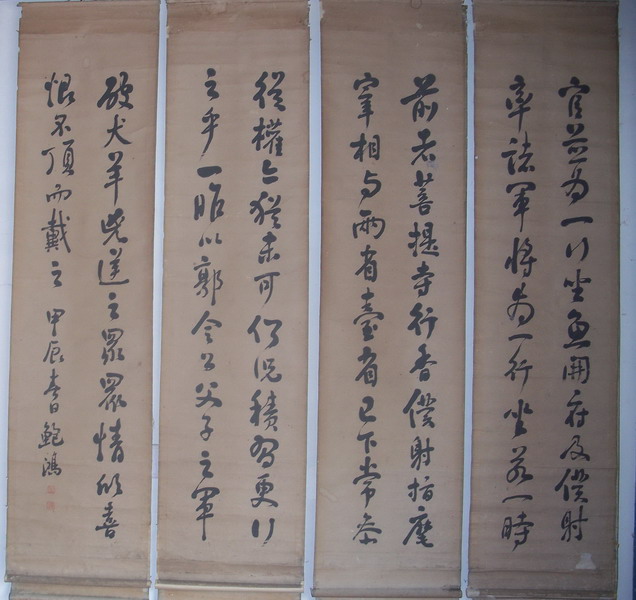 官並為一行坐魚開府及僕射
率諸軍將為一行坐若一時
前者菩提寺行香僕射指麾
宰相与兩省臺省已下常參
從權亦猶未可何況積習更行
之乎一昨以郭令公父子之軍
破犬羊兇逆之眾眾情欣喜
恨不頂而戴之 甲辰春日鮑鴻